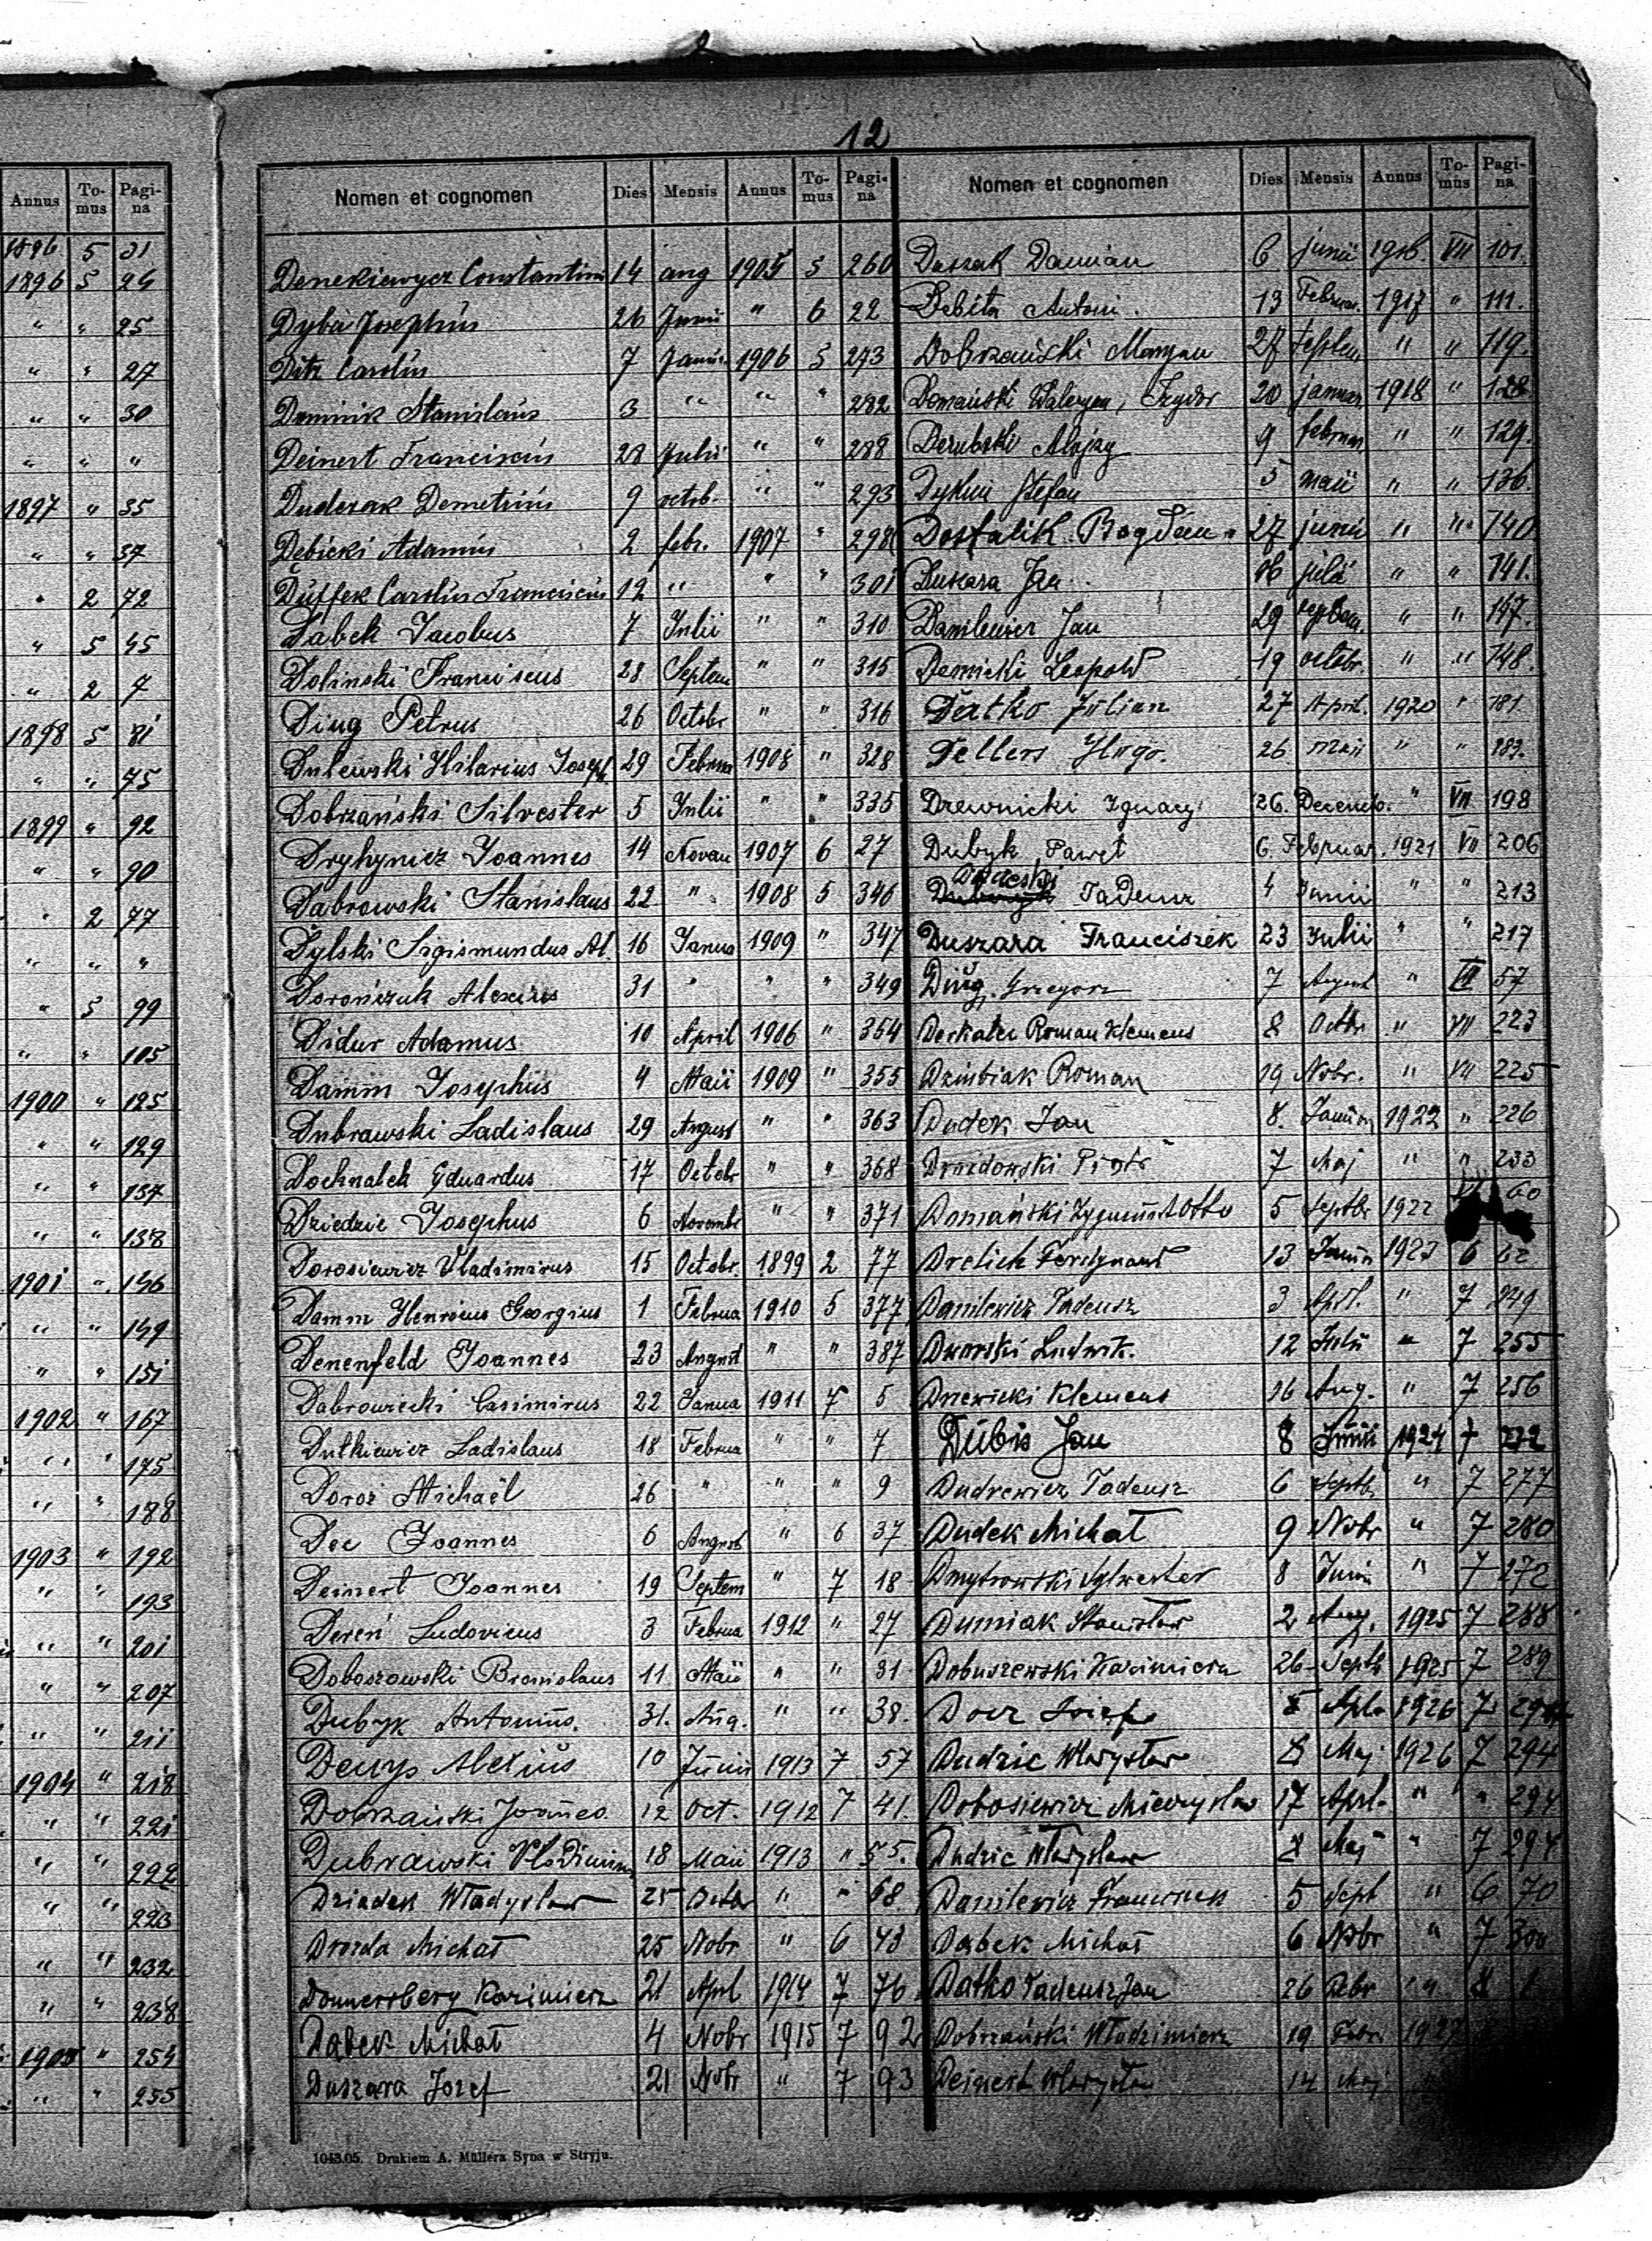 12
Annus To-mus Pagi-na
1896 5 21
1896 5 24
" " 25
" " 27
" " 30
" " "
1897 " 35
" " 37
" 2 72
" 5 45
" 2 7
1898 5 81
" " 75
1899 " 92
" " 90
" 2 77
" " "
" 5 99
" " 105
1900 " 125
" " 129
" " 137
" " 138
1901 " 146
" " 149
" " 151
1902 " 167
" " 175
" " 188
1903 " 192
" " 193
" " 201
" " 207
" " 211
1904 " 218
" " 221
" " 222
" " 223
" " 232
" " 238
1905 " 254
" " 255
Nomen et cognomen Dies Mensis Annus To-mus Pagi-na
Denekiewycz Constantin 14 aug 1905 5 260
Dyba Josephus 26 Junii " 6 22
Ditz Carolus 7 1906 5 273
Dominik Stanislaus 3 " " " 282
Deinert Franciscus 28 Julii " " 288
Duderak Demetrius 9 octob. " " 293
Dębicki Adamus 2 febr. 1907 " 298
Duffek Carolus Franciscus 12 " " " 301
Dąbek Jacobus 7 Julii " " 310
Dolinski Franciscus 28 Septem " " 315
Diug Petrus 26 Octobr " " 316
Dulewski Hilarius Joseph 29 Februa 1908 " 328
Dobrzański Silvester 5 Julii " " 335
Dryhynicz Joannes 14 Novem 1907 6 27
Dąbrowski Stanislaus 22 " 1908 5 346
Dylski Sigismundus Al. 16 Janua 1909 " 347
Dorończuk Alexius 31 " " " 349
Didur Adamus 10 April 1906 " 354
Damm Josephus 4 Maii 1909 " 355
Dubrawski Ladislaus 29 August " " 363
Dochnalek Eduardus 17 Octobr " " 368
Dziedzic Josephus 6 Novembr " " 371
Dorosiewicz Vladimirus 15 Octobr. 1899 2 77
Damm Henricus Georgius 1 Februa 1910 5 377
Denenfeld Joannes 23 August " " 387
Dąbrowiecki Casimirus 22 Janua 1911 7 5
Dutkiewicz Ladislaus 18 Februa " " 7
Doroż Michaël 26 " " " 9
Dec Joannes 6 August " 6 37
Deinert Joannes 19 Septem " 7 18
Dereń Ludovicus 3 Februa 1912 " 27
Doboszowski Bronislaus 11 Maii " " 31
Dubyk Antonius. 31. Aug. " " 38.
Denys Alexius 10 Junii 1913 7 57
Dobrzański Joannes 12 Oct. 1912 7 41.
Dubrawski 18 Maii 1913 " 55.
Dziadek Władysław 25 Octobr " " 68.
Drozda Michał 25 Nobr " 6 43
Donnersberg Kazimierz 21 Aprl 1914 7 76
Dąbek Michał 4 Nobr 1915 7 92
Duszara Jozef 21 Nobr " 7 93
Nomen et cognomen Dies Mensis Annus To-mus Pagi-na
Duszak Damian 6 junii 1916. VII 101.
Debita Antoni. 13 Februar. 1917 " 111.
Dobrzański Maryan 27 Septem " " 119.
Domański Waleryan, Izydor 20 januar 1918 " 128.
9 februar " " 129.
Stefan 5 maii " " 136.
Dostalik Bogdan 27 junii " " 140
Duszara Jan 16 " " 141.
Danilewicz Jan 29 " " 147.
Leopold 19 octobr. " " 148.
Datko Julian 27 April. 1920 " 181.
Dellers Hugo. 26 maii " " 183.
Drewnicki Ignacy 26. Decemb. " VII 198
Dubyk Paweł 6. Februar. 1921 VII 206
Tadeusz 4 Junii " " 213
Duszara Franciszek 23 Julii " " 217
Diug Grzegorz 7 August " VI 57
Derkatcz Roman Klemens 8 Octbr " VII 223
Dzimbiak Roman 19 Nobr. " VII 225
Dudek Jan 8. 1922 " 226
Drozdowski Piotr 7 Maj " " 233
Domański Zygmunt Otto 5 Septbr 1922 60
Drelich Ferdynand 13 1923 6 62
Danilewicz Tadeusz 3 Aprl. " 7 249
Dworski Ludwik. 12 Julii " 7 255
Drzewicki Klemens 16 Aug. " 7 256
Dubis Jan 8 Junii 1924 7 272
Dudrewicz Tadeusz 6 Septbr " 7 277
Dudek Michał 9 Nobr " 7 280
Dmytrowski Sylwester 8 Junii " 7 272
Dumiak Stanisław 2 Aug. 1925 7 288
Dobuszewski Kazimierz 26 Septb 1925 7 289
Józef Aprl 1926 7
Dudzic Władysław 8 Maj 1926 7 294
Dobosiewicz Mieczysław 17 Aprl. " " 294
Dudzic Władysław 8 Maj " 7 294
Danilewicz Franciszek 5 Sept " 6 70.
Dąbek Michał 6 Nobr " 7 300
Datko Tadeusz Jan 26 Dbr " 8 1
Dobrzański Włodzimierz 19 Febr. 1927
Deinert Władysław 14 Maj
1043.05. Drukiem A. Müllera Syna w Stryju.